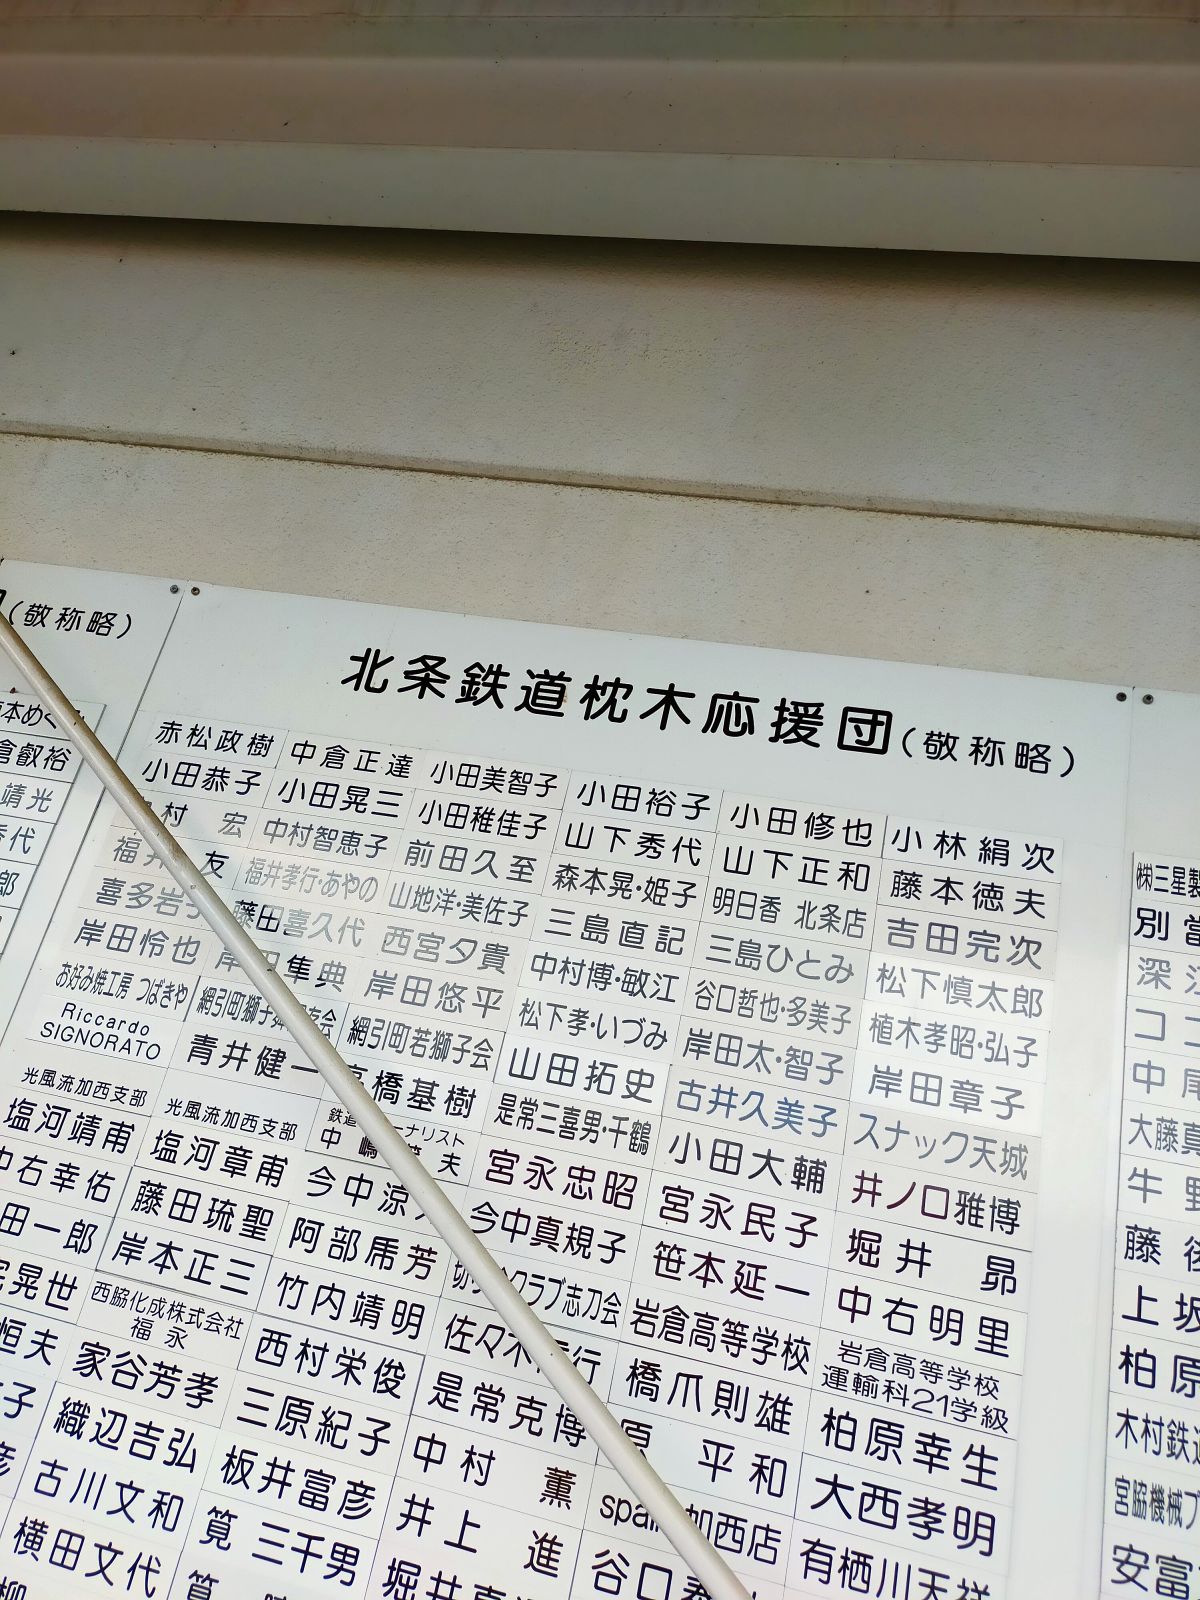 (敬称略)
北条鉄道枕木応援団(敬称略)
赤松政樹 中倉正達 小田美智子 小田裕子 小田修也 小林絹次
小田恭子 小田晃三 小田稚佳子 山下秀代 山下正和 藤本徳夫
村 宏 中村智恵子 前田久至 森本晃・姫子 明日香 北条店 吉田完次
福井 友 福井孝行・あやの 山地洋・美佐子 三島直記 三島ひとみ 松下慎太郎
喜多岩子 藤田喜久代 西宮夕貴 中村博・敏江 谷口哲也・多美子 植木孝昭・弘子
岸田怜也 岸田隼典 岸田悠平 松下孝・いづみ 岸田太・智子 岸田章子
お好み焼工房 つばきや 網引町獅子 友会 網引町若獅子会 山田拓史 古井久美子 スナック天城
Riccardo
SIGNORATO 青井健一 高橋基樹 是常三喜男・千鶴 小田大輔 井ノ口雅博
光風流加西支部
塩河靖甫 光風流加西支部
塩河章甫 鉄道 ーナリスト
中嶋 夫 宮永忠昭 宮永民子 堀井 昴
中右幸佑 藤田琉聖 今中涼 今中真規子 笹本延一 中右明里
田一郎 岸本正三 阿部馬芳 クラブ志刀会 岩倉高等学校 岩倉高等学校
運輸科21学級
晃世 西脇化成株式会社
福永 竹内靖明 佐々木 行 橋爪則雄 柏原幸生
恒夫 家谷芳孝 西村栄俊 是常克博 原 平和 大西孝明
子 織辺吉弘 三原紀子 中村 薫 加西店 有栖川天祥
古川文和 板井富彦 井上 進 谷口
横田文代 筧 三千男 堀井
本めぐ
倉叡裕
靖光
秀代
郎
㈱三星製
別當
深江
ココ
中尾
大藤真
牛野
藤後
上坂
柏原
木村鉄道
宮脇機械プ
安富